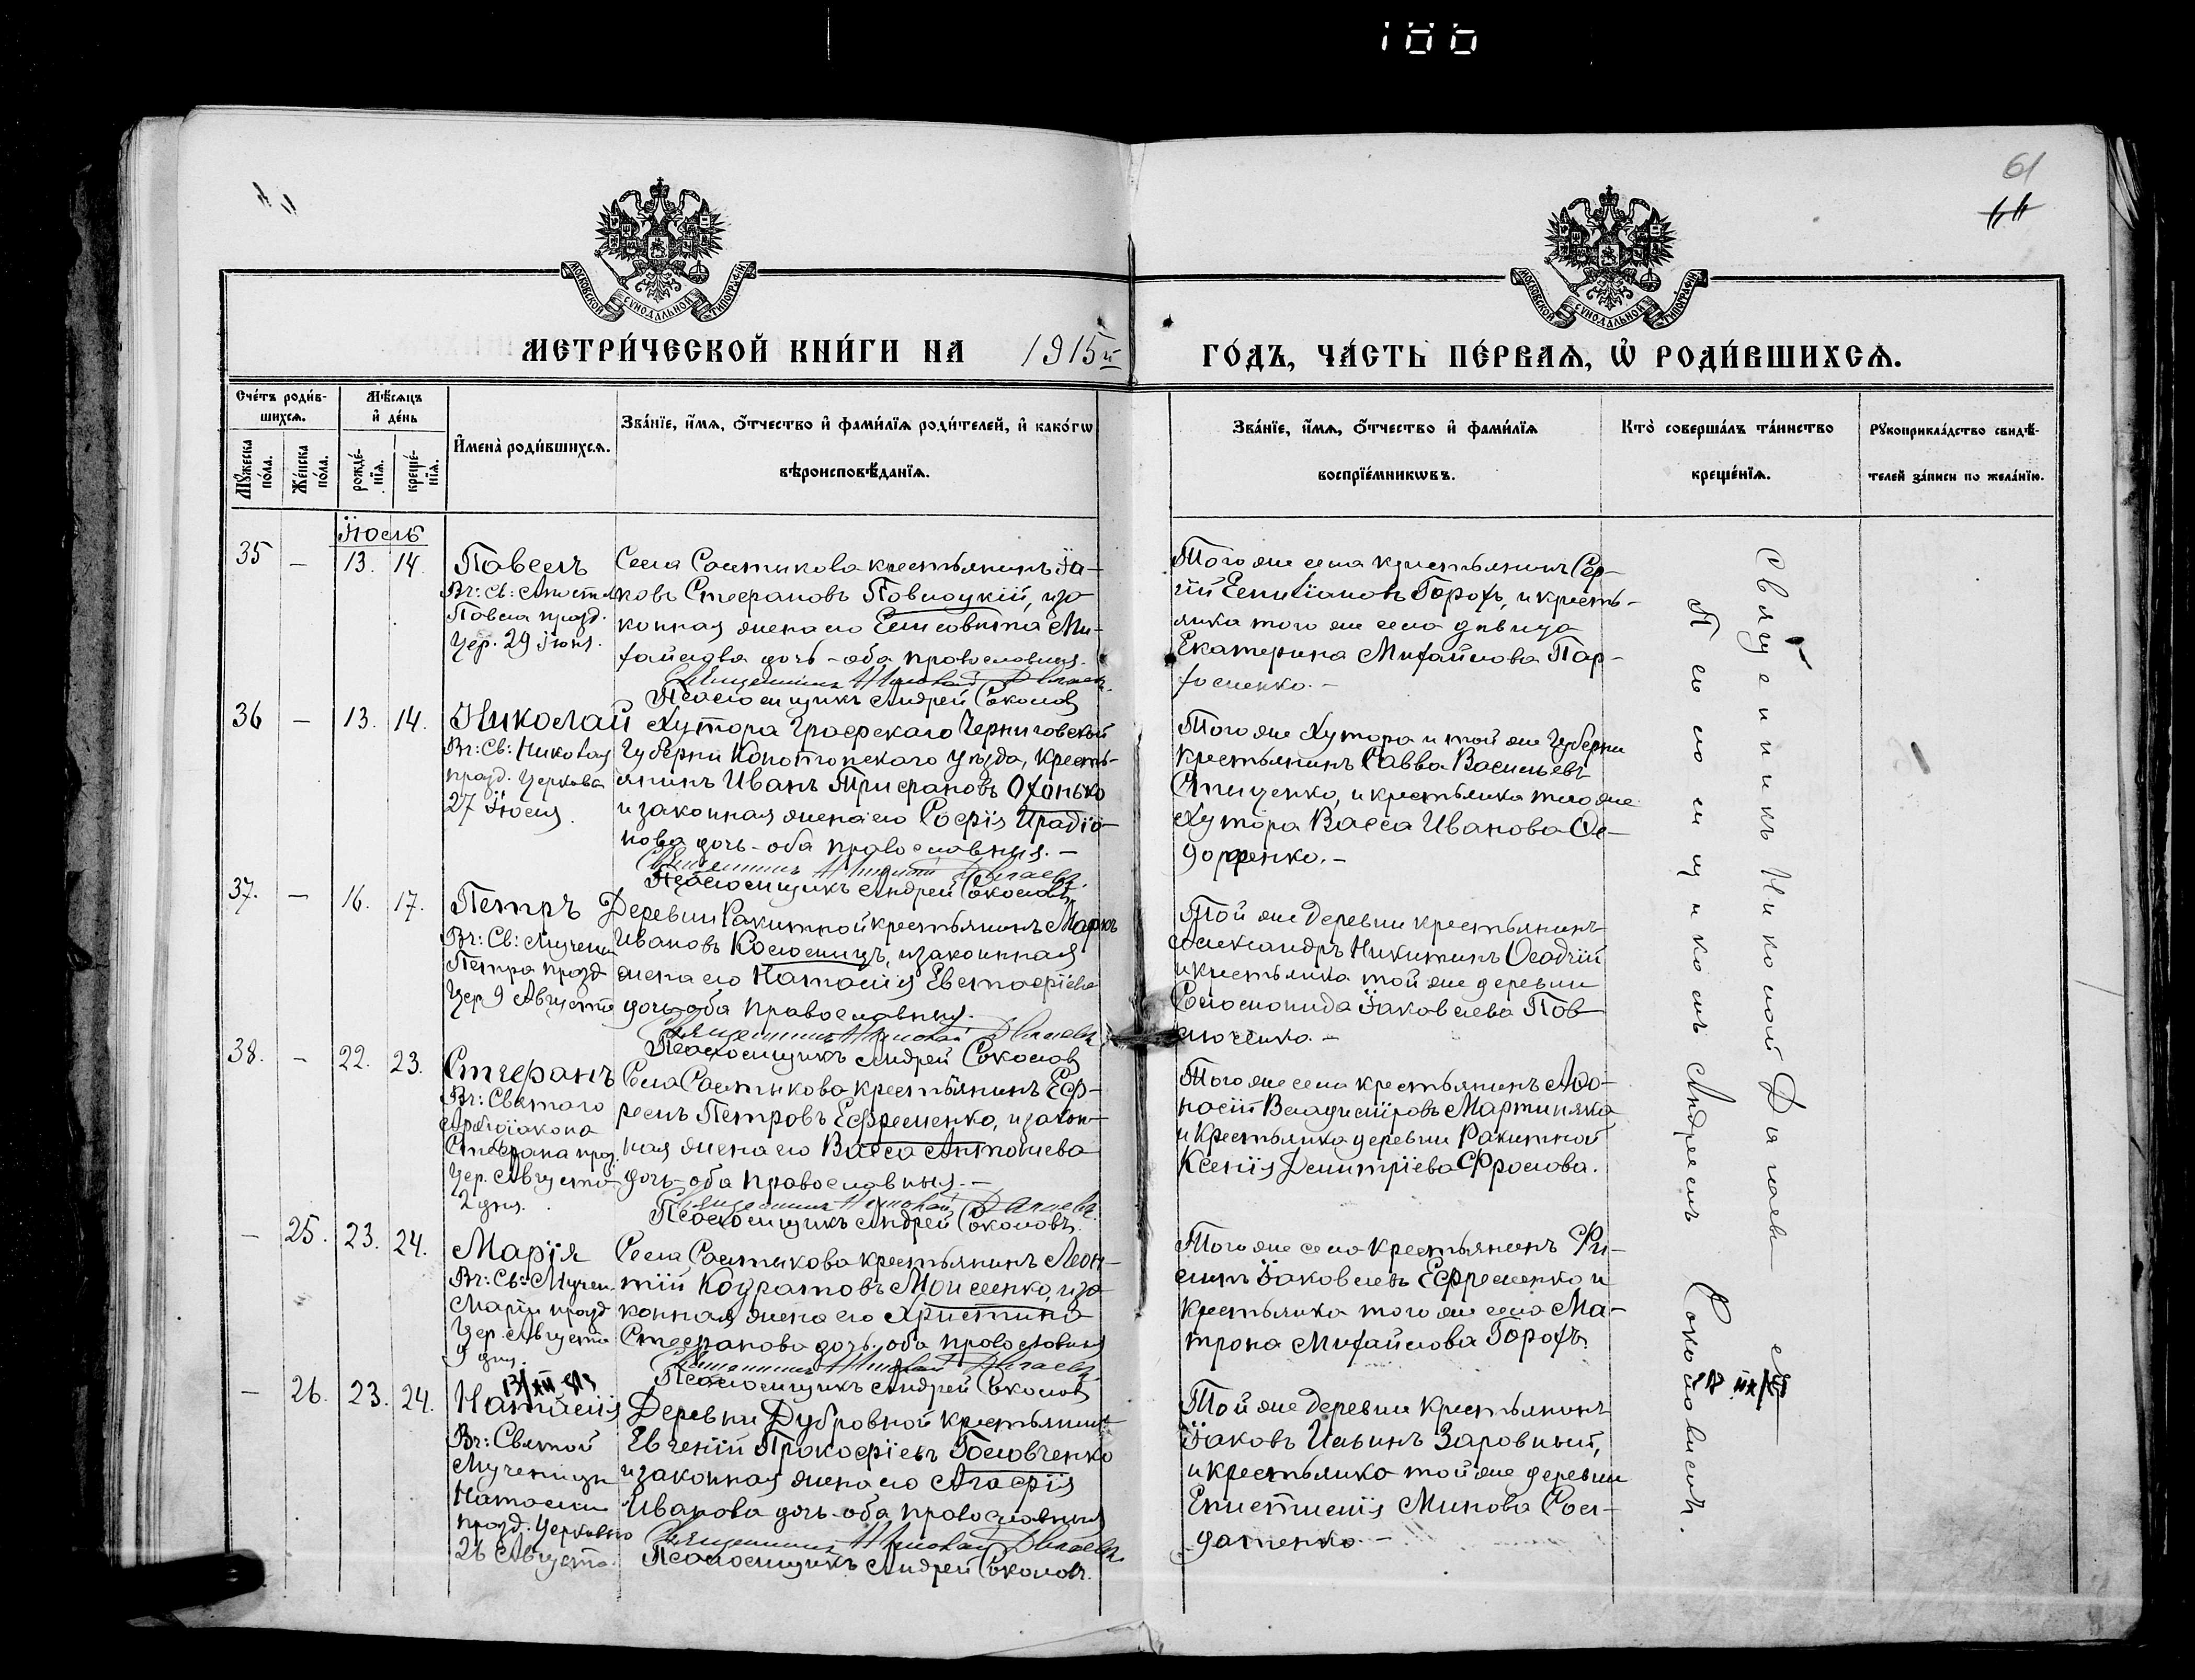 188
61
МОСКОВСКОЙ СУНОДАЛЬНОЙ ТИПОГРАФІИ
МОСКОВСКОЙ СУНОДАЛЬНОЙ ТИПОГРАФІИ
МЕТРИ́ЧЕСКОЙ КНИ́ГИ НА 1915й ГО́ДЪ, ЧА́СТЬ ПЕ́РВАѦ, Ѡ РОДИ́ВШИХСѦ.
Сче́тъ роди́в-
шихсѧ.
Мѣ́сѧцъ
и҆ де́нь
Мꙋ́жеска
по́ла.
Же́нска
по́ла.
рожде́-
нїѧ.
креще́-
нїѧ.
И҆мена̀ роди́вшихсѧ.
Зва́нїе, и҆́мѧ, ѻ҆́тчество и҆ фами́лїѧ роди́телей, и҆ како́гѡ
вѣроисповѣ́данїѧ.
Зва́нїе, и҆́мѧ, ѻ҆́тчество и҆ фами́лїѧ
воспрїе́мникѡвъ.
Кто̀ соверша́лъ та́инство
креще́нїѧ.
Рꙋкоприкла́дство свидѣ́-
телей за́писи по жела́нїю.
Іюль
35 – 13. 14.
Павелъ
Вч: Св: Апостол
Павла празд.
Цер. 29 Іюня.
Села Салтыкова крестьянинъ Іа-
ковъ Стефановъ Павлоцкій, и за-
конная жена его Елисавета Ми-
хайлова дочь – оба православныя.
Священникъ Николай Дягаевъ
Псаломщикъ Андрей Соколовъ
Того же села крестьянинъ Сер-
гій Емиліановъ Горохъ, и кресть-
янка того же села дѣвица
Екатерина Михайлова Пар-
хоменко. –
36 – 13. 14.
Николай
Вч: Св: Николая
празд. Церковью
27 Іюля.
Хутора Графскаго Черниговской
Губерни Конотопскаго уѣзда, кресть-
янинъ Иванъ Трифановъ Охонько
и законная жена его Софія Ирадіо-
нова дочь – оба православныя. –
Священникъ Николай Дягаевъ
Псаломщикъ Андрей Соколовъ
Того же Хутора и той же Губерни
крестьянинъ Савва Васильевъ
и крестьянка того же
Хутора Васса Иванова Ѳе-
доренко. –
37. – 16. 17.
Петръ
Вч: Св: Мучени
Петра празд
Цер 9 Августа
Деревни Ракитной крестьянинъ Маркъ
Ивановъ и законная
жена его Наталія Евстафіева
дочь оба православныя.
Священникъ Николай Дягаевъ
Псаломщикъ Андрей Соколовъ
Той же Деревни крестьянинъ
Александръ Никитинъ Осадчій
и крестьянка той же деревни
Соломонида Іаковлева Пав
люченко. –
38. – 22. 23.
Стефанъ
Вч: Святаго
Архидіакона
Стефана праз.
Цер. Августа
2 дня.
Села Салтыкова крестьянинъ Еф-
ремъ Петровъ Ефременко, и закон-
ная жена его Васса Антоніева
дочь – оба православныя. –
Священникъ Николай Дягаевъ
Псаломщикъ Андрей Соколовъ.
Того же села крестьянинъ Аѳа-
насій Владиміровъ Мартиняка
и Крестьянка деревни Ракитной
Ксенія Димитріева Фролова.
– 25. 23. 24.
Марія
Вч: Св: Мучен.
Маріи празд
Цер. Августа
9 дня.
Села Салтыкова крестьянинъ Леон-
тій Кодратовъ Моисеенко, и за-
конная жена его Христина
Стефанова дочь, оба православныя
Священникъ Николай Дягаевъ
Псаломщикъ Андрей Соколовъ
Того же села Крестьянинъ Фи-
липъ Іаковлевъ Ефременко и
Крестьянка того же села Ма-
трона Михайлова Горохъ
– 26. 23. 24.
Наталія
Вч: Святой
Мученицы
Наталіи
празд. Церковью
26 Августа.
Деревни Дубровной Крестьянинъ
Евгеній Прокофіевъ Головченко
и законная жена его Агафія
Иванова дочь – оба православныя
Священникъ Николай Дягаевъ
Псаломщикъ Андрей Соколовъ.
Той же Деревни Крестьянинъ
Іаковъ Ильинъ Заровный,
и крестьянка той же деревни
Епистимія Минова Сол-
датенко –
Священникъ Николай Дягаевъ съ
Псаломщикомъ Андреемъ Соколовымъ.